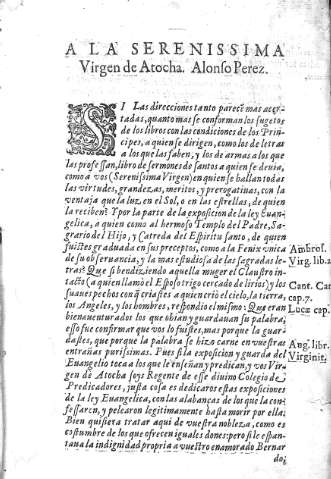 A LA SERENISSIMA
Virgen de Atocha. Alonso Perez.
SI Las direcciones tanto parecē mas acer-
tadas, quanto mas se conforman los sugetos
de los libros con las condiciones de los Prin-
cipes, a quien se dirigen, como los de letras
a los que las saben, y los de armas a los que
las professan, libro de sermones de santos a quien se deuia,
como a vos (Serenissima Virgen) en quien se hallan todas
las virtudes, grandezas, meritos, y prerogatiuas, con la
ventaja que la luz, en el Sol, o en las estrellas, de quien
la reciben? Y por la parte de la exposicion de la ley Euan-
gelica, a quien como al hermoso Templo del Padre, Sa-
grario del Hijo, y Catreda del Espiritu santo, de quien
fuistes graduada en sus preceptos, como a la Fenix vnica
de su obseruancia, y la mas estudiosa de las sagradas le-
tras? Que si bendiziendo aquella muger el Claustro in-
tacto (a quien llamò el Esposo trigo cercado de lirios) y los
suaues pechos con q̃ criastes a quien criò el cielo, la tierra,
los Angeles, y los hombres, respondio el mismo: Que eran
bienauenturados los que oìan y guardauan su palabra,
esso fue confirmar que vos lo fuistes, mas porque la guar-
dastes, que porque la palabra se hizo carne en vuestras
entrañas purissimas. Pues si la exposicion y guarda del
Euangelio toca a los que le enseñan y predican, y vos Vir-
gen de Atocha soys Regente de esse diuino Colegio de
Predicadores, justa cosa es dedicaros estas exposiciones
de la ley Euangelica, con las alabanças de los que la con-
fessaron, y pelearon legitimamente hasta morir por ella.
Bien quisiera tratar aqui de vuestra nobleza, como es
costumbre de los que ofrecen iguales dones: pero si le espan-
taua la indignidad propria a vuestro enamorado Bernar
do,
Ambros.
Virg. lib.2
Cant. Can
cap. 7.
Lucæ cap.
Aug. libr.
Virginit.